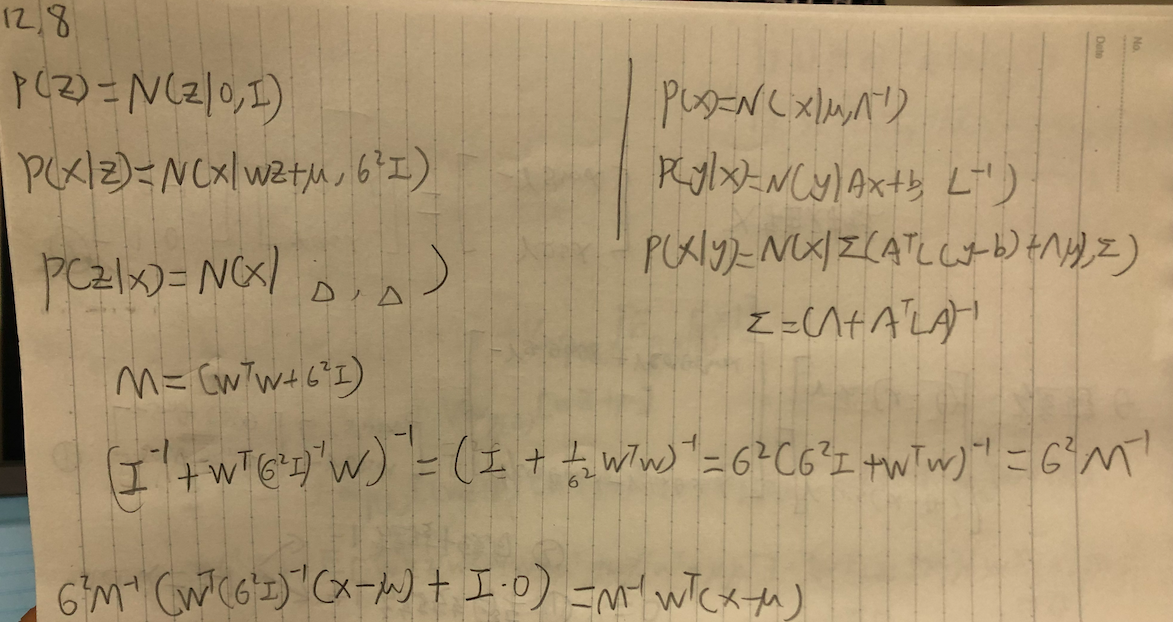 12.8
P(z)=N(z|0,I)
P(x|z)=N(x|wz+μ, σ²I)
P(z|x)=N(x| △, △ )
M=(WᵀW+σ²I)
P(x)=N(x|μ,Λ⁻¹)
P(y|x)=N(y|Ax+b, L⁻¹)
P(x|y)=N(x|Σ(AᵀL(y-b)+Λμ),Σ)
Σ=(Λ+AᵀLA)⁻¹
(I⁻¹+Wᵀ(σ²I)⁻¹W)⁻¹=(I+1/σ² WᵀW)⁻¹=σ²(σ²I+WᵀW)⁻¹=σ²M⁻¹
σ²M⁻¹(Wᵀ(σ²I)⁻¹(x-μ)+I·0)=M⁻¹Wᵀ(x-μ)
No.
Date